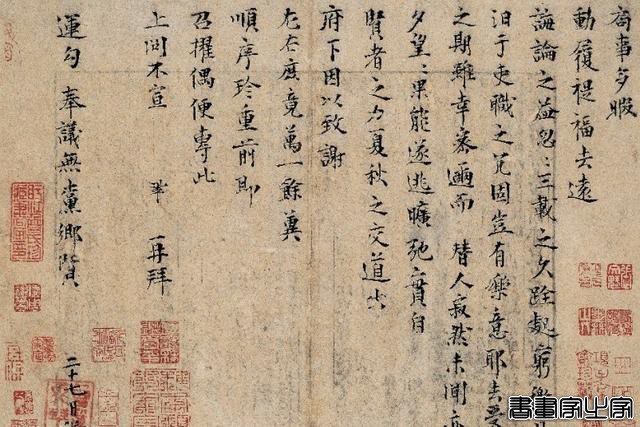 局事多暇
動履褆福去遠
誨論之益忽〻三載之久跧處窮徼
汩于吏職之冗固豈有樂意耶去受
之期雖幸密邇而替人寂然未聞亦
夕望〻果能遂逃曠弛實自
賢者之力夏秋之交道出
府下因以致謝
左右庶竟萬一餘冀
順序珍重前即
召擢偶便專此
上問不宣 鞏 再拜
運勾 奉議無黨鄉賢
二十七日
書畫家之家